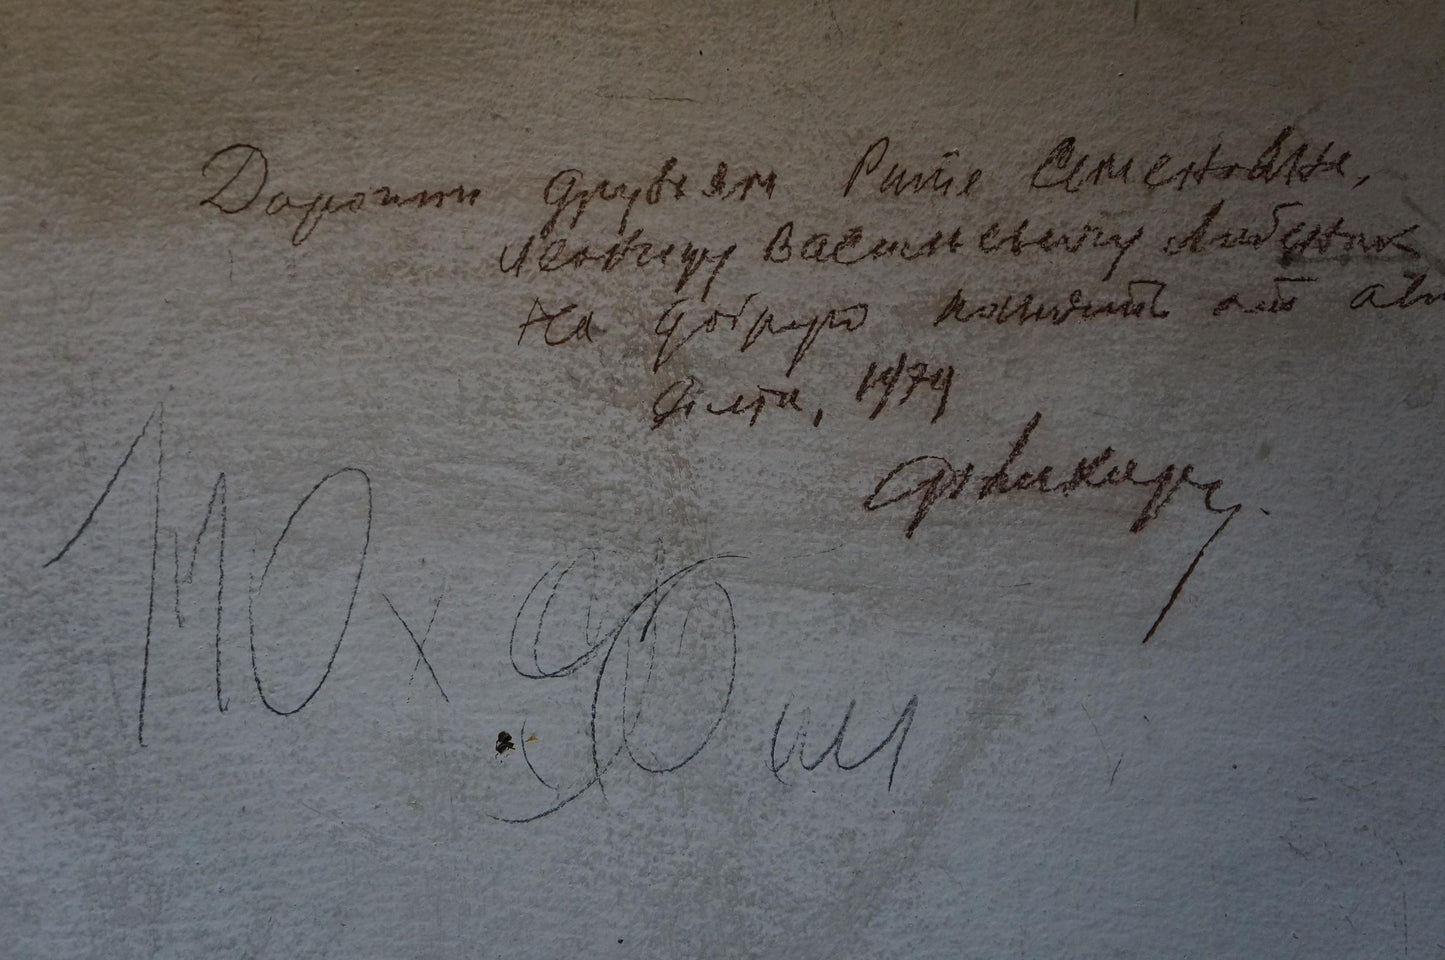 Дорогим друзьям Рите Семеновне,
Леониду Васильевичу
На добрую память от авт
Ялта, 1974
110 х 90 см